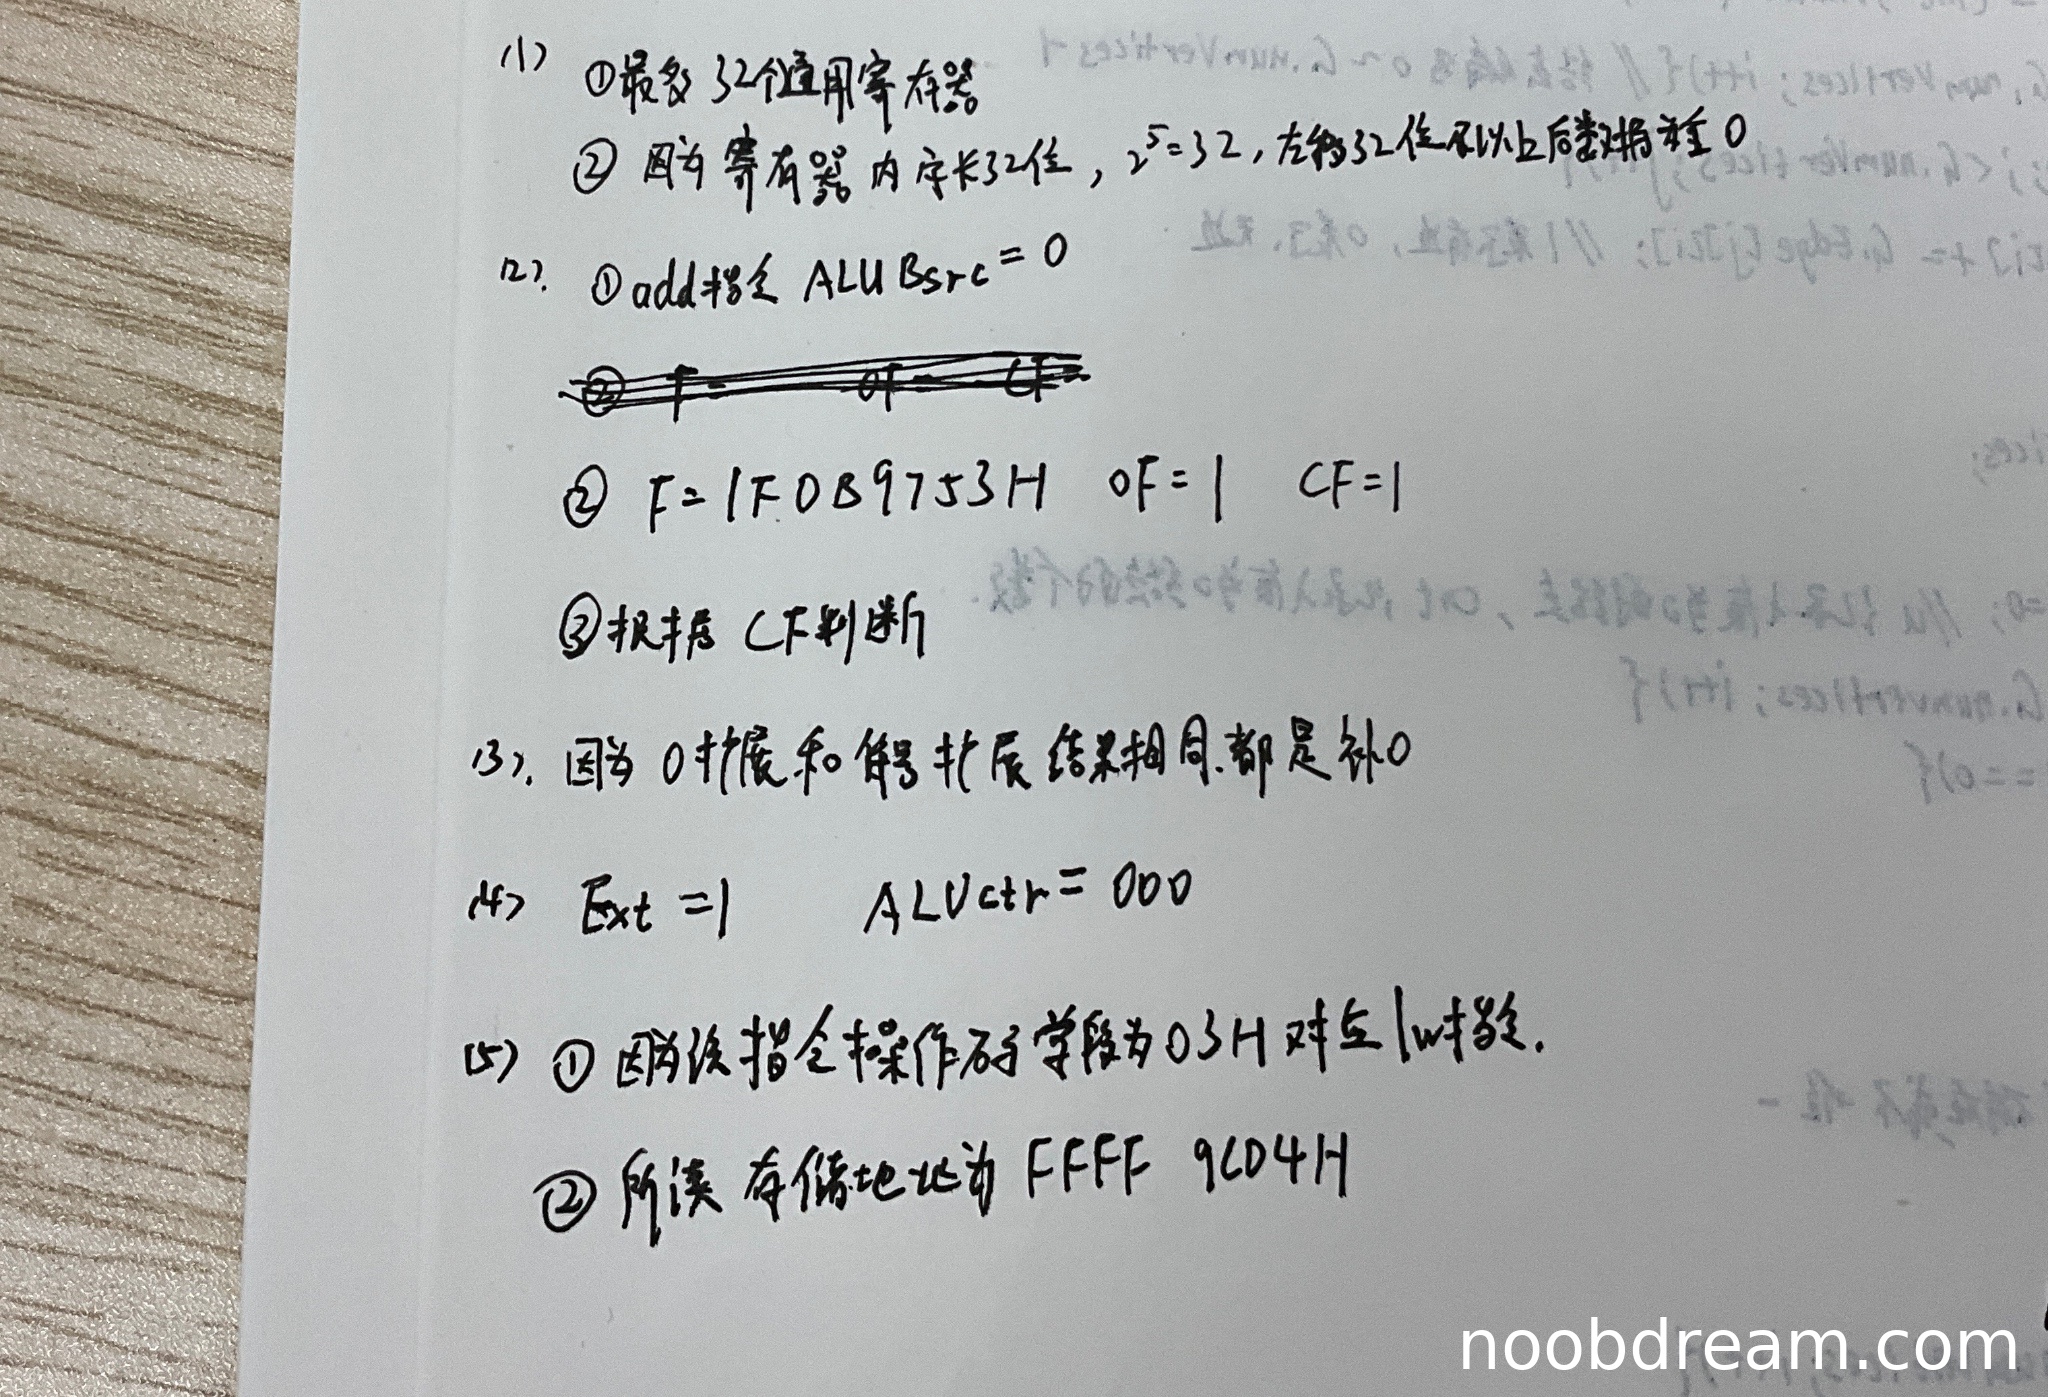 (1) ①最多32个通用寄存器
② 因为寄存器内字长32位，2⁵=32，左移32位及以上后数据为全0
(2). ①add指令 ALUBsrc=0
② F=1F0B9753H OF=1 CF=1
③根据CF判断
(3). 因为0扩展和符号扩展结果相同.都是补0
(4) Ext=1 ALUctr=000
(5) ①因为该指令操作码字段为03H对应lw指令.
② 所读存储地址为 FFFF 9CD4H
noobdream.com